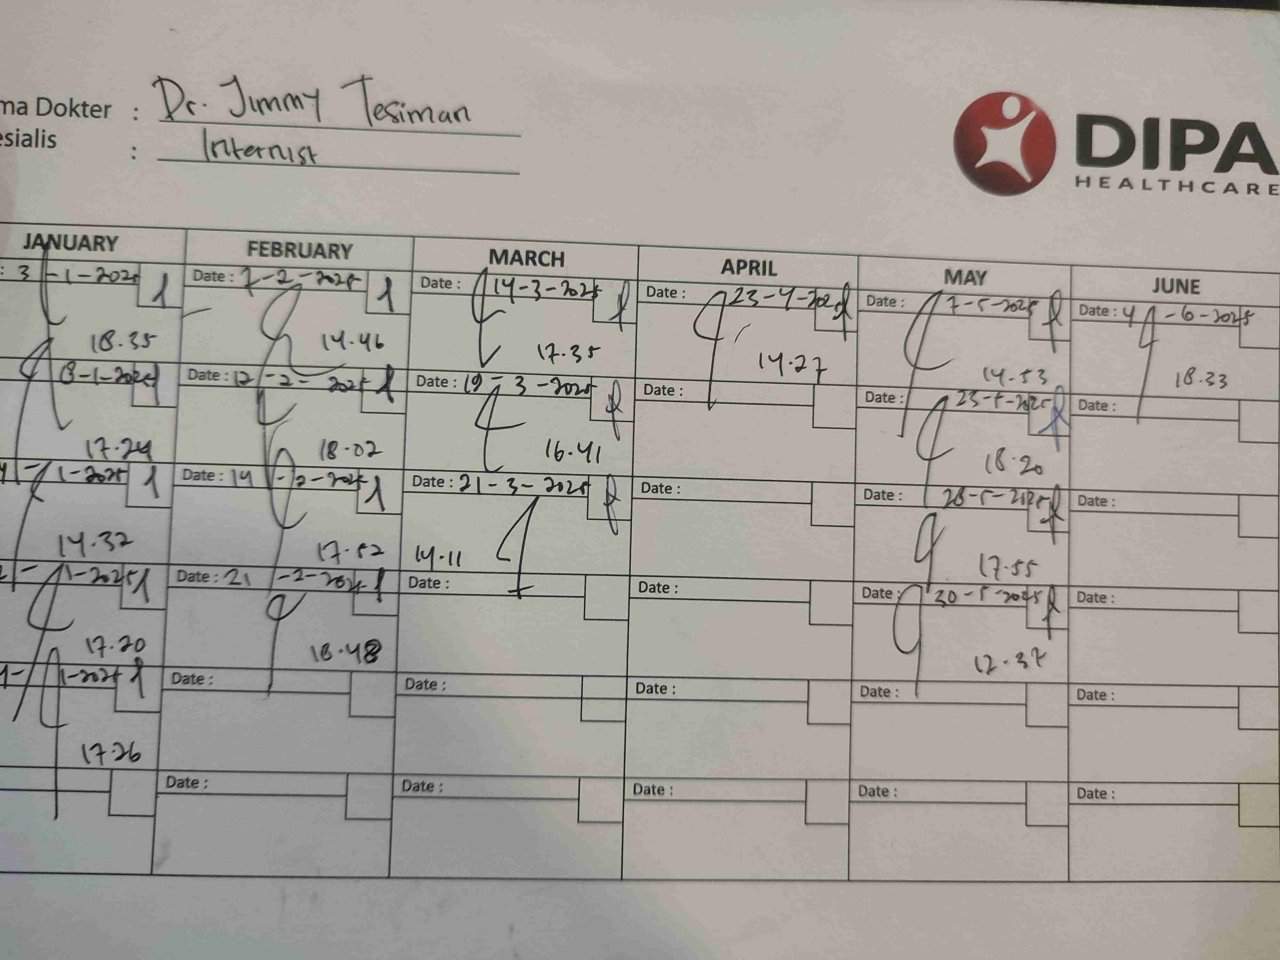 ma Dokter : Dr. Jimmy Tesiman
esialis : Internist
DIPA
HEALTHCARE
JANUARY FEBRUARY MARCH APRIL MAY JUNE
: 3 -1-2025 Date : 7-2-2025 Date : 14-3-2025 Date : 23-4-2025 Date : 7-5-2025 Date : 4 -6-2025
18.35 14.46 17.35 14.27 14.53 18.33
8-1-2025 Date : 12 -2- 2025 Date : 19- 3 -2025 Date : Date : 23-5-2025 Date :
17.24 18.02 16.41 18.20
1-2025 Date : 14 -2-2025 Date : 21-3-2025 Date : Date : 28-5-2025 Date :
14.32 17.52 14.11 17.55
1-2025 Date : 21 -2-2025 Date : Date : Date : 30-5-2025 Date :
17.20 18.48 12.37
1-2025 Date : Date : Date : Date : Date :
17.26
Date : Date : Date : Date : Date :